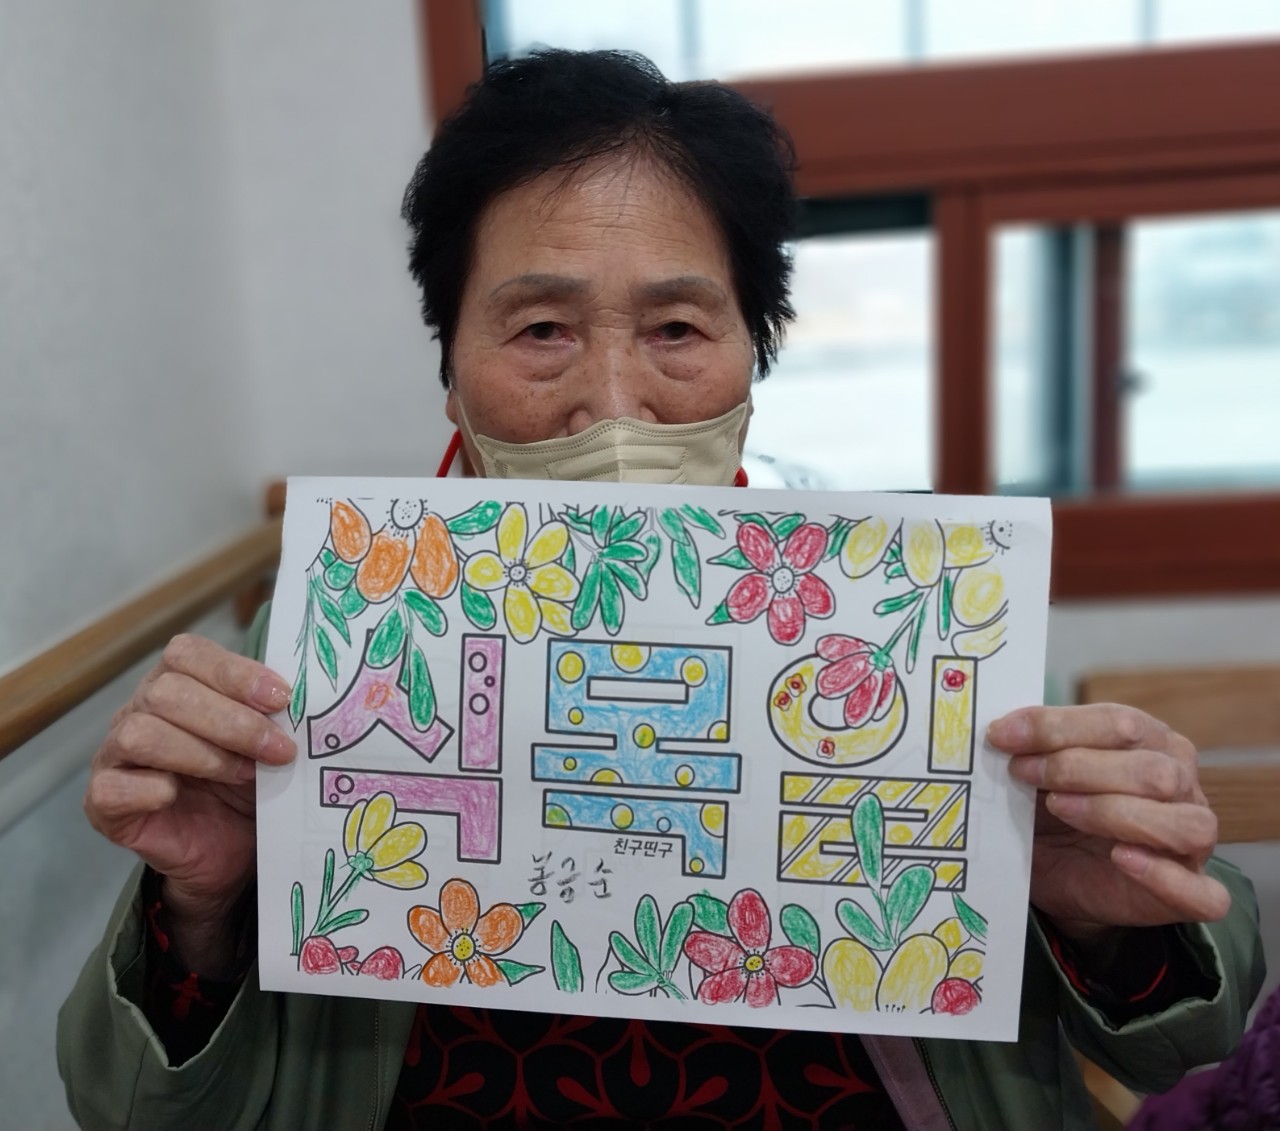 식목일
친구띤구
봉금순